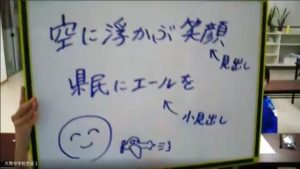 空に浮かぶ笑顔
↖見出し
県民にエールを
↖小見出し
大熊中学校生徒1